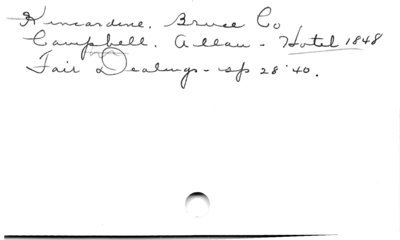 Kincardine. Bruce Co
Campbell. Allan - Hotel 1848
Fair Dealings - sp 28 '40.